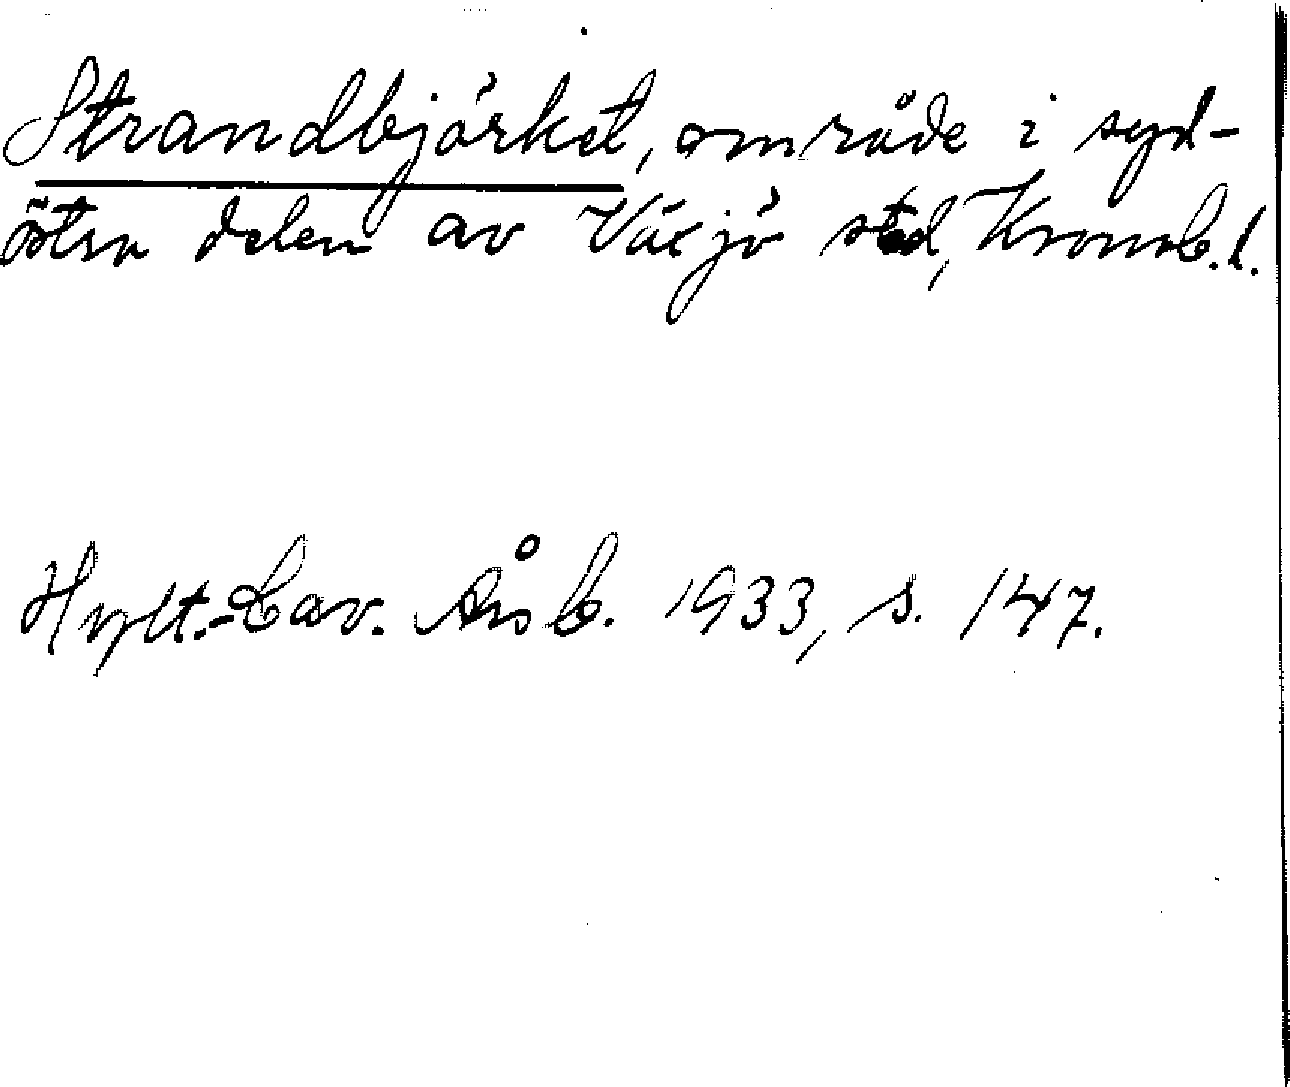 Strandbjörket, område i syd-
östra delen av Växjö stad, Kronob.l.
Hylt.-Cav. Årsb. 1933, s. 147.